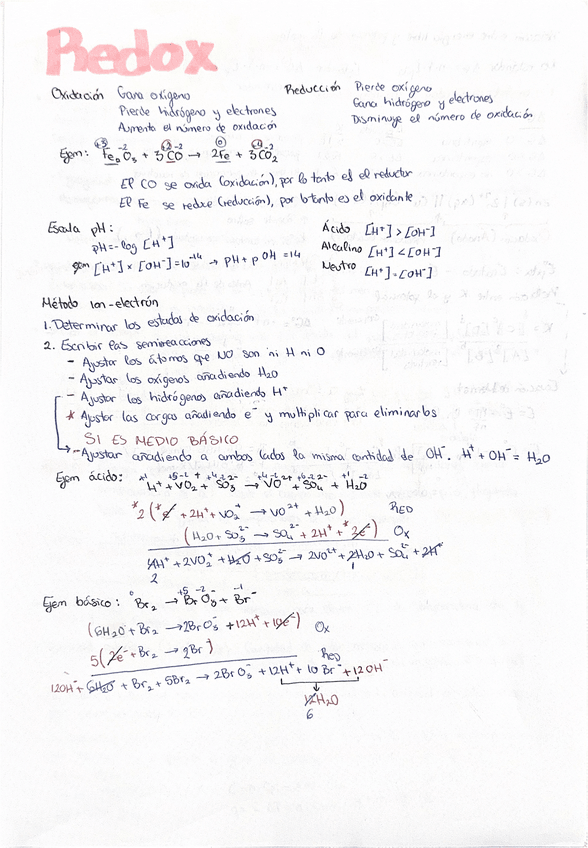 Redox
Oxidación Gana oxígeno
Pierde hidrógeno y electrones
Aumenta el número de oxidación
Reducción Pierde oxígeno
Gana hidrógeno y electrones
Disminuye el número de oxidación
+3 -2 +2 -2 0 +4 -2
Ejem: Fe₂O₃ + 3CO → 2Fe + 3CO₂
El CO se oxida (oxidación), por lo tanto es el reductor
El Fe se reduce (reducción), por lo tanto es el oxidante
Escala pH:
pH = -log [H⁺]
[H⁺] × [OH⁻] = 10⁻¹⁴ → pH + pOH = 14
Ácido [H⁺] > [OH⁻]
Alcalino [H⁺] < [OH⁻]
Neutro [H⁺] = [OH⁻]
Método ion-electrón
1. Determinar los estados de oxidación
2. Escribir las semireacciones
- Ajustar los átomos que NO son ni H ni O
- Ajustar los oxígenos añadiendo H₂O
- Ajustar los hidrógenos añadiendo H⁺
* Ajustar las cargas añadiendo e⁻ y multiplicar para eliminarlos
SI ES MEDIO BÁSICO
- Ajustar añadiendo a ambos lados la misma cantidad de OH⁻ H⁺ + OH⁻ = H₂O
Ejem ácido: H⁺ + VO₂⁺ + SO₃²⁻ → VO²⁺ + SO₄²⁻ + H₂O
*2 (*e⁻ + 2H⁺ + VO₂⁺ → VO²⁺ + H₂O) RED
(H₂O + SO₃²⁻ → SO₄²⁻ + 2H⁺ + *2e⁻) Ox
4H⁺ + 2VO₂⁺ + H₂O + SO₃²⁻ → 2VO²⁺ + 2H₂O + SO₄²⁻ + 2H⁺
2 1
0 +5 -2 -1
Ejem básico: Br₂ → BrO₃⁻ + Br⁻
(6H₂O + Br₂ → 2BrO₃⁻ + 12H⁺ + 10e⁻) Ox
5(2e⁻ + Br₂ → 2Br⁻) Red
12OH⁻ + 6H₂O + Br₂ + 5Br₂ → 2BrO₃⁻ + 12H⁺ + 10Br⁻ + 12OH⁻
12H₂O
6